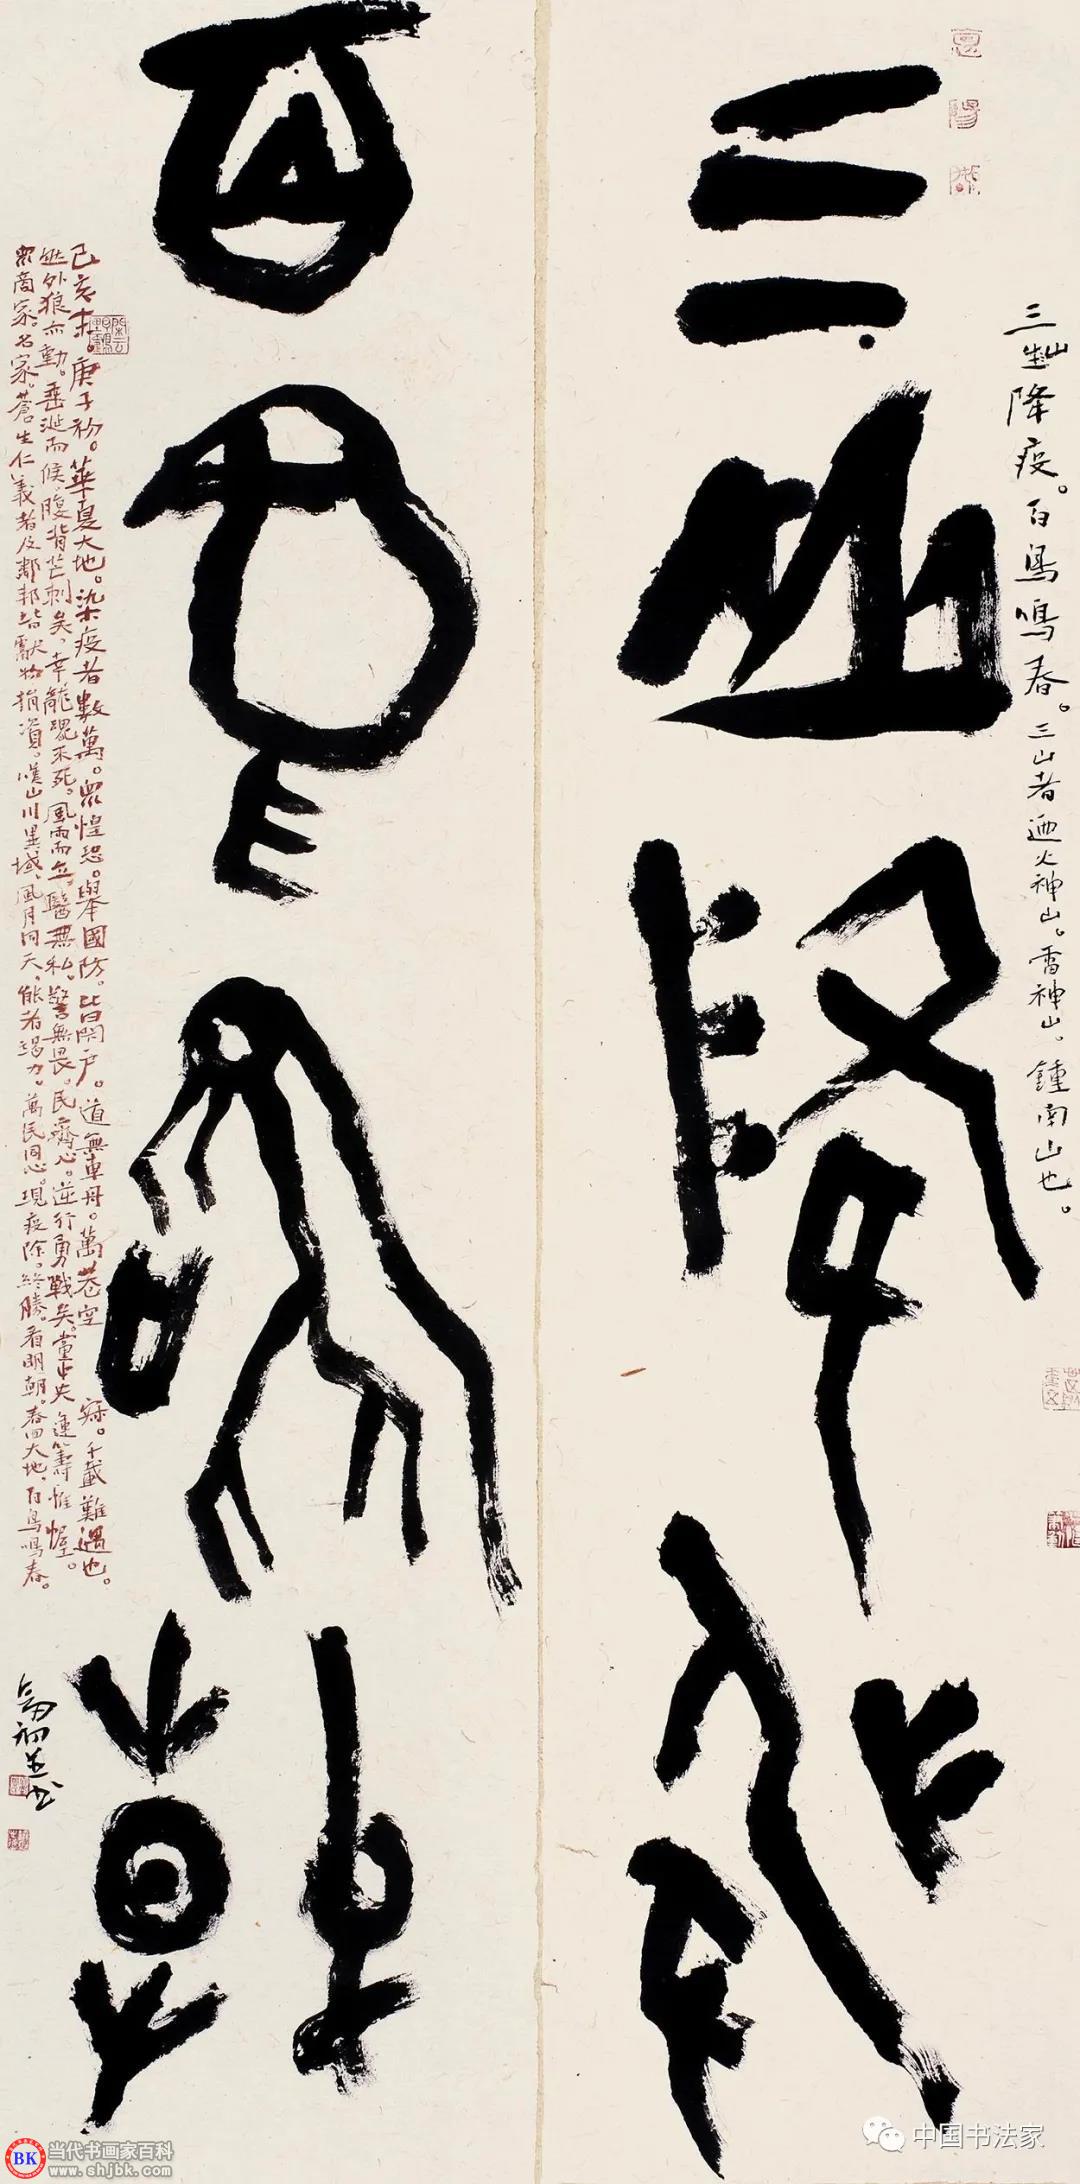 三山降疫
百鸟鸣春
三山降疫。百鳥鳴春。三山者迺火神山。雷神山。鍾南山也。
己亥末。庚子初。華夏大地。染疫者數萬。眾惶恐。舉國防。比日閉户。道無車舟。萬巷空寂。千載難遇也。
外狼而動。垂涎而候。腹背芒刺矣。幸龍混不死。風雨而立。醫無私。警無畏。民齊心。逆行勇戰矣。黨中央運籌惟幄。
眾商家。名家。蒼生仁義者及鄰邦皆獻物捐資。嘆山川異域。風月同天。能者竭力。萬民同心。現疫除。終勝。看明朝。春回大地。百鳥鳴春。
当代书画家百科
www.shjbk.com
BK
中国书法家